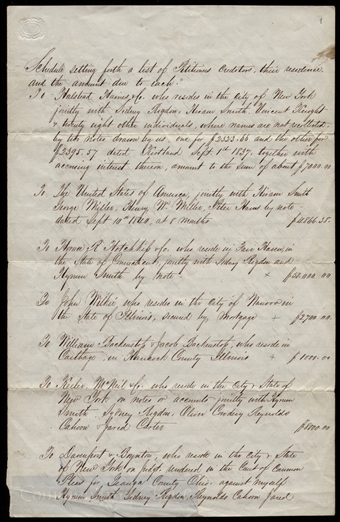 Schedule setting forth a list of Petitions Creditors, their residence
and the amount due to each.
To Halsted, Haines & Co. who reside in the city of New York
jointly with Sidney Rigdon, Hiram Smith Vincent Knight
& twenty eight other individuals, whose names are not recollected,
by two Notes drawn by said, one for $2323.66 and the other for
$2395.57 dated Kirtland Sept. 1st 1837, together with
accruing interest thereon, amount to the sum of about $7000.00
To The United States of America, jointly with Hiram Smith
George Miller, Henry W. Miller, & Peter Haws by note
dated Sept 10th 1840, at 8 months. $4866.38
To Horace R. Hotchkiss & Co who reside in Fair Haven, in
the State of Connecticut, jointly with Sidney Rigdon and
Hyrum Smith by Note $50.000.00
To John Wilkie who resides in the City of Nauvoo in
the State of Illinois, secured by Mortgage $2700.00
To William Backenstos & Jacob Backenstos, who reside in
Carthage in Hancock County Illinois $1000.00
To Keeler, McNeil & Co. who reside in the City & State of
New York on notes or accounts jointly with Hyrum
Smith Sydney Rigdon, Oliver Cowdery Reynolds
Cahoon & Jared Carter $800.00
To Davenport & Boynton, who reside in the city & State
of New York, on Judgt. rendered in the Court of Common
Pleas for Geauga County Ohio. against myself
Hyrum Smith Sidney Rigdon Reynolds Cahoon Jared